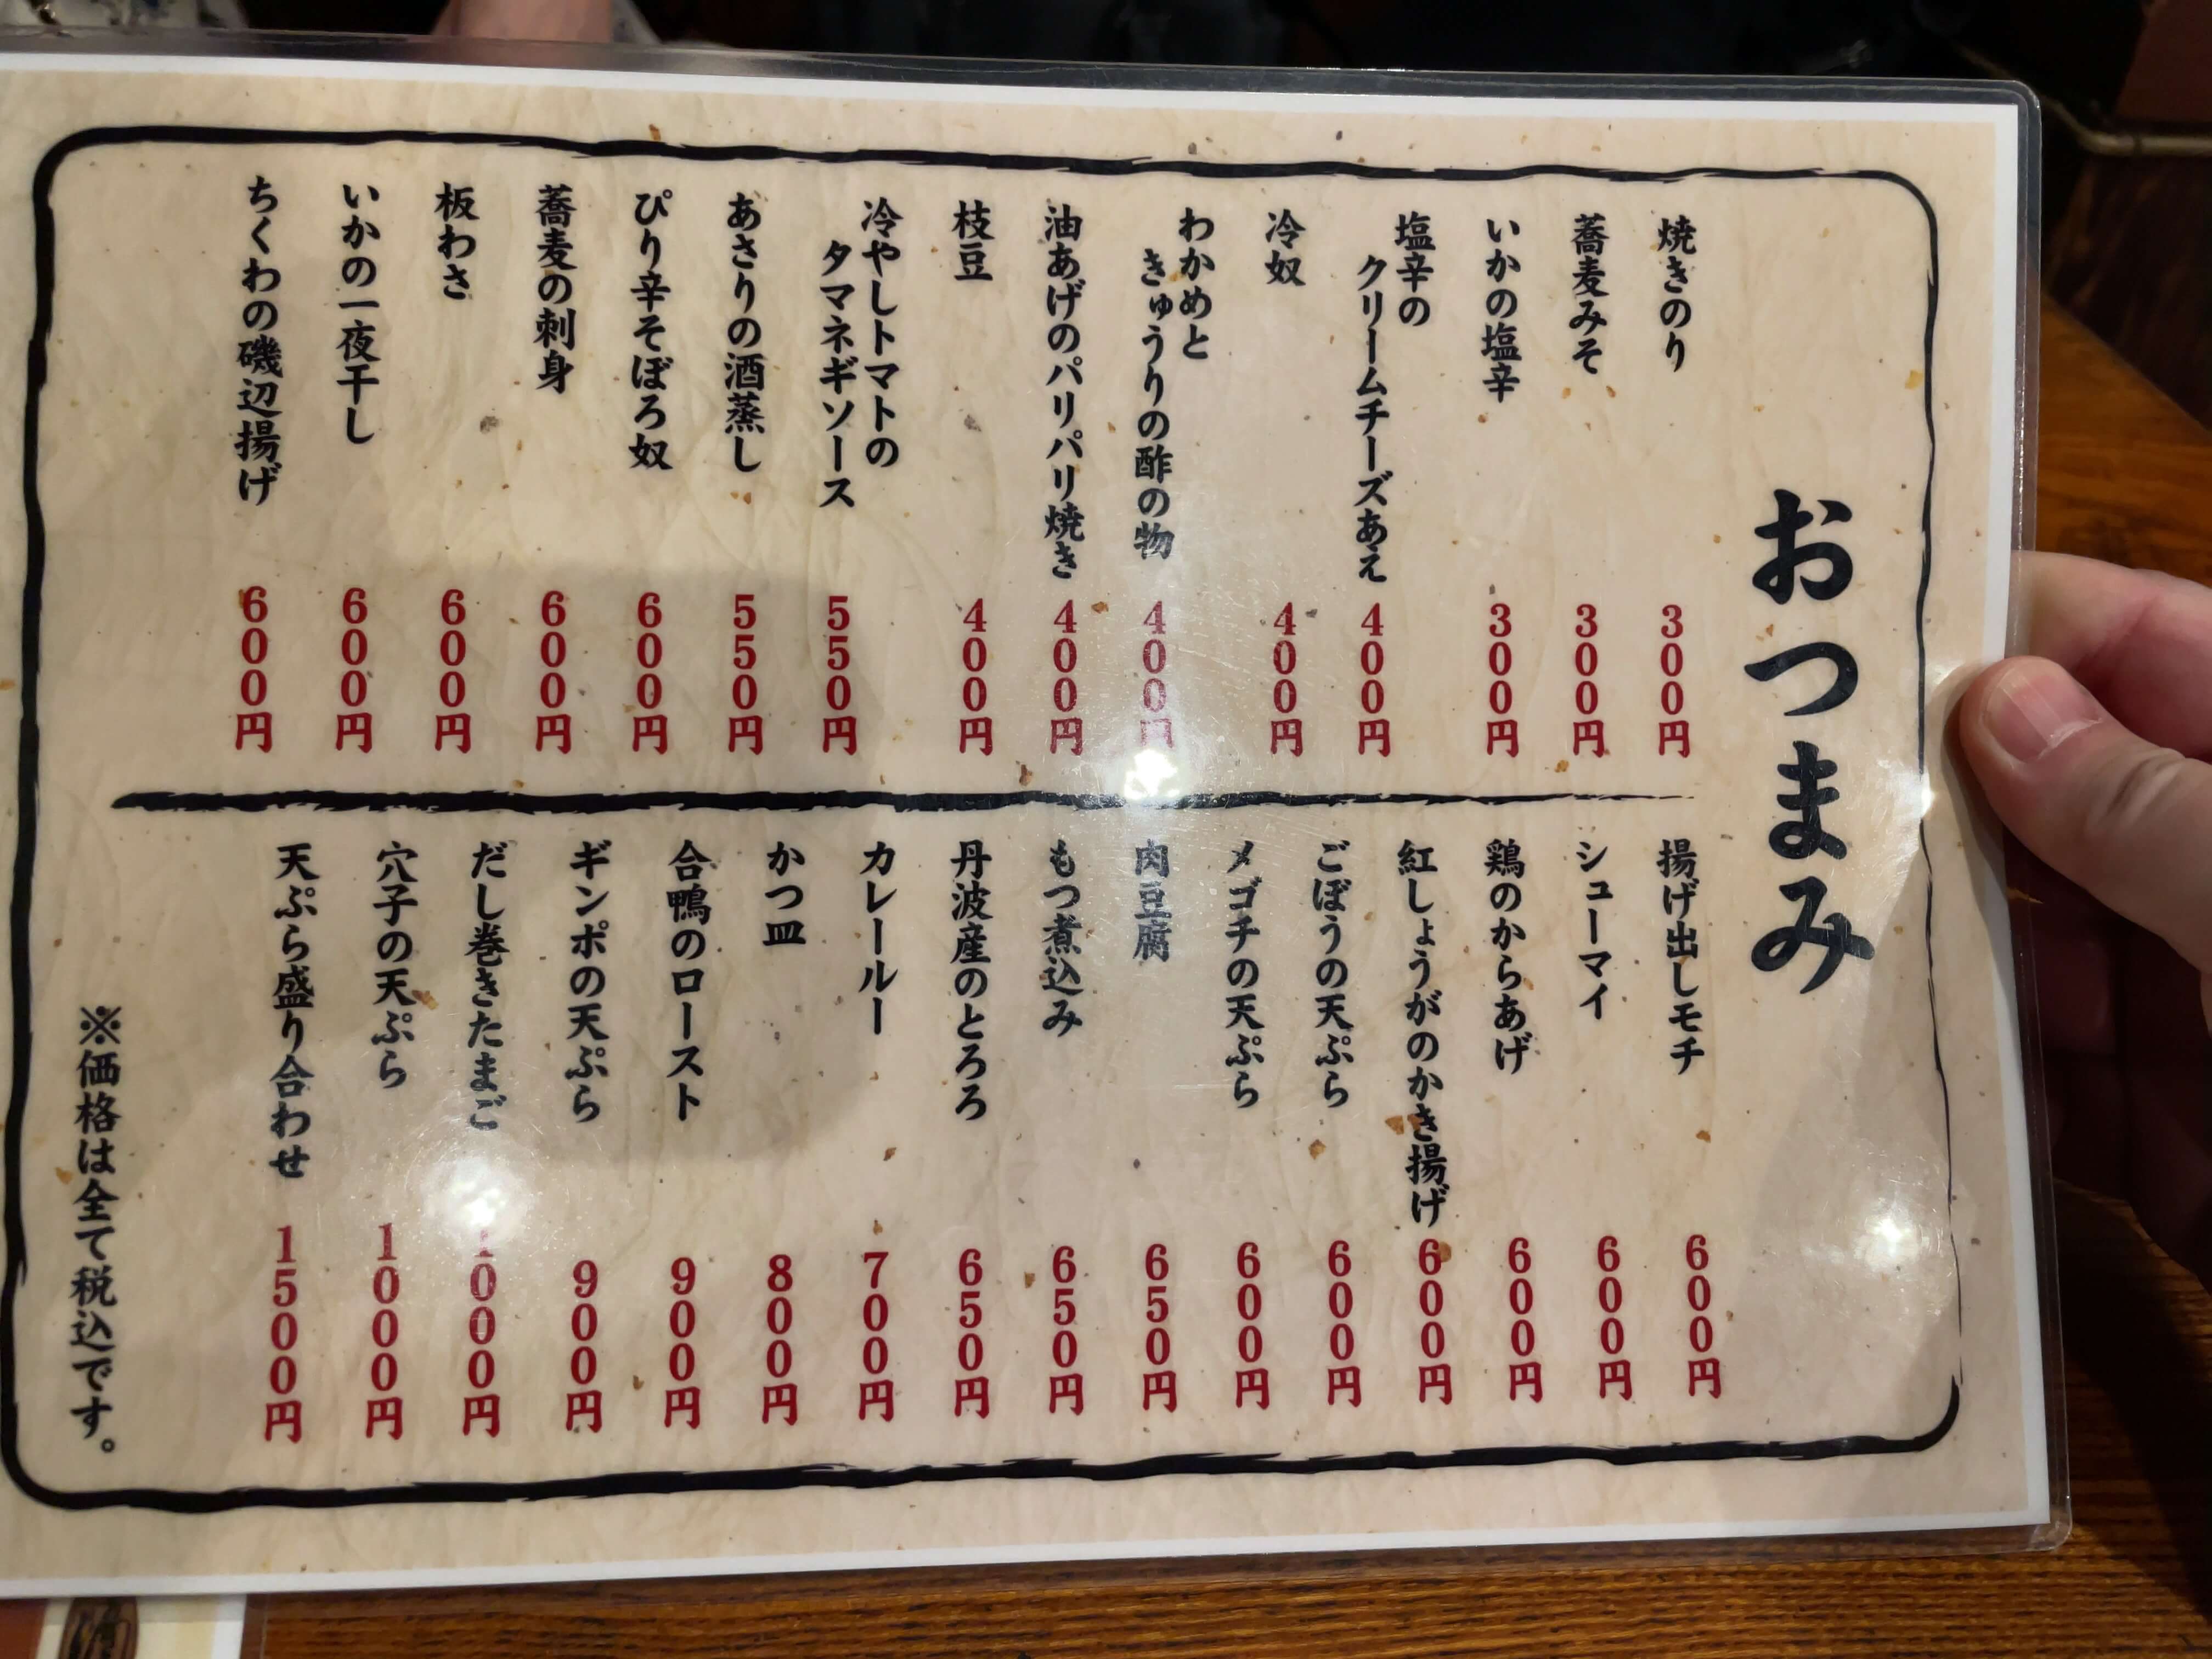 おつまみ
焼きのり 300円
蕎麦みそ 300円
いかの塩辛 300円
塩辛の
クリームチーズあえ 400円
冷奴 400円
わかめと
きゅうりの酢の物 400円
油あげのパリパリ焼き 400円
枝豆 400円
冷やしトマトの
タマネギソース 550円
あさりの酒蒸し 550円
ぴり辛そぼろ奴 600円
蕎麦の刺身 600円
板わさ 600円
いかの一夜干し 600円
ちくわの磯辺揚げ 600円
揚げ出しモチ 600円
シューマイ 600円
鶏のからあげ 600円
紅しょうがのかき揚げ 600円
ごぼうの天ぷら 600円
メゴチの天ぷら 600円
肉豆腐 650円
もつ煮込み 650円
丹波産のとろろ 650円
カレールー 700円
かつ皿 800円
合鴨のロースト 900円
ギンポの天ぷら 900円
だし巻きたまご 1000円
穴子の天ぷら 1000円
天ぷら盛り合わせ 1500円
※価格は全て税込です。